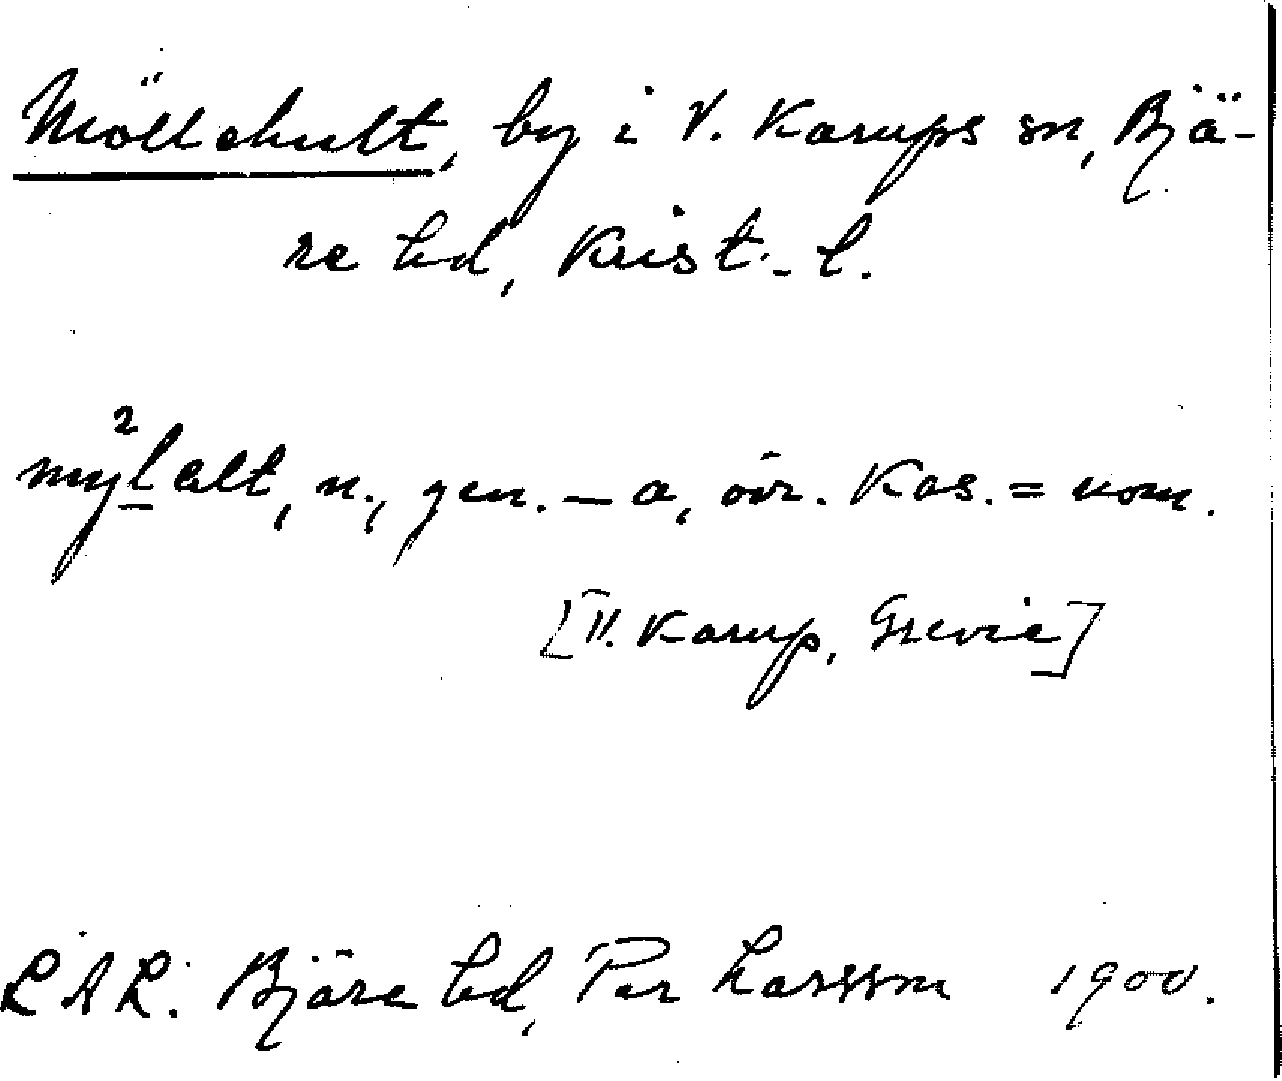 Möllehult, by i V. Karups sn, Bjä-
re hd, Krist. l.
my²lelt, n., gen. – a, övr. kas. = nom.
[V. Karup, Grevie]
LAL: Bjäre hd, Per Larsson 1900.